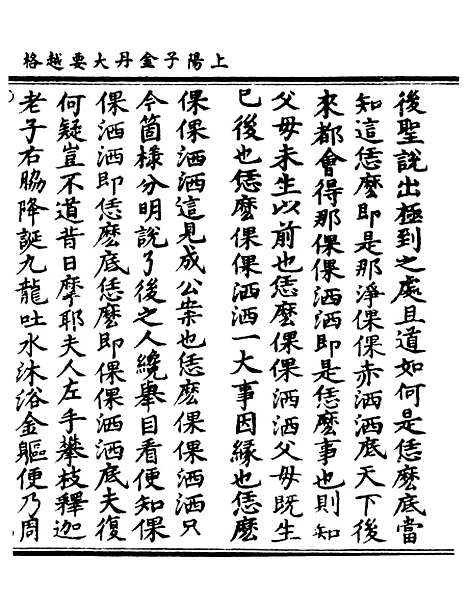 上陽子金丹大要越格
後聖說出極到之處且道如何是恁麼底當
知這恁麼即是那淨倮倮赤洒洒底天下後
來都會得那倮倮洒洒即是恁麼事也則知
父母未生以前也恁麼倮倮洒洒父母既生
已後也恁麼倮倮洒洒一大事因緣也恁麼
倮倮洒洒這見成公案也恁麼倮倮洒洒只
今箇樣分明說了後之人纔舉目看便知倮
倮洒洒即恁麼底恁麼即倮倮洒洒底夫復
何疑豈不道昔日摩耶夫人左手攀枝釋迦
老子右脇降誕九龍吐水沐浴金軀便乃周